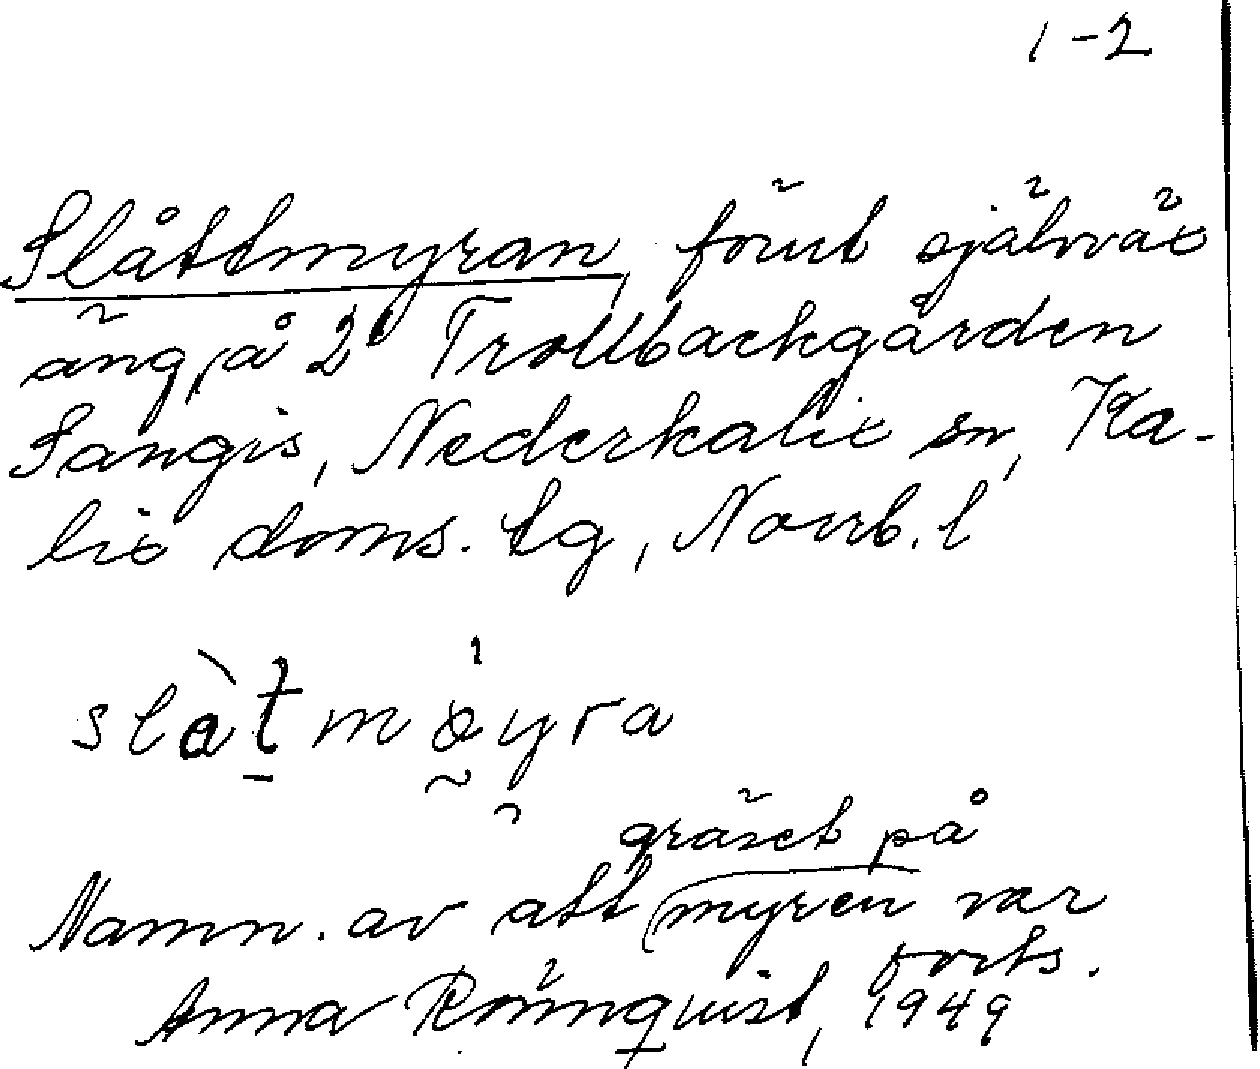 1-2
Slåttmyran, förut självväx
äng, å 2¹ Trollbackgården
Sangis, Nederkalix sn, Ka-
lix doms. tg, Norrb. l
slàt̠möyra
gräset på
Namn. av att myren var
forts.
Anna Rönnquist, 1949